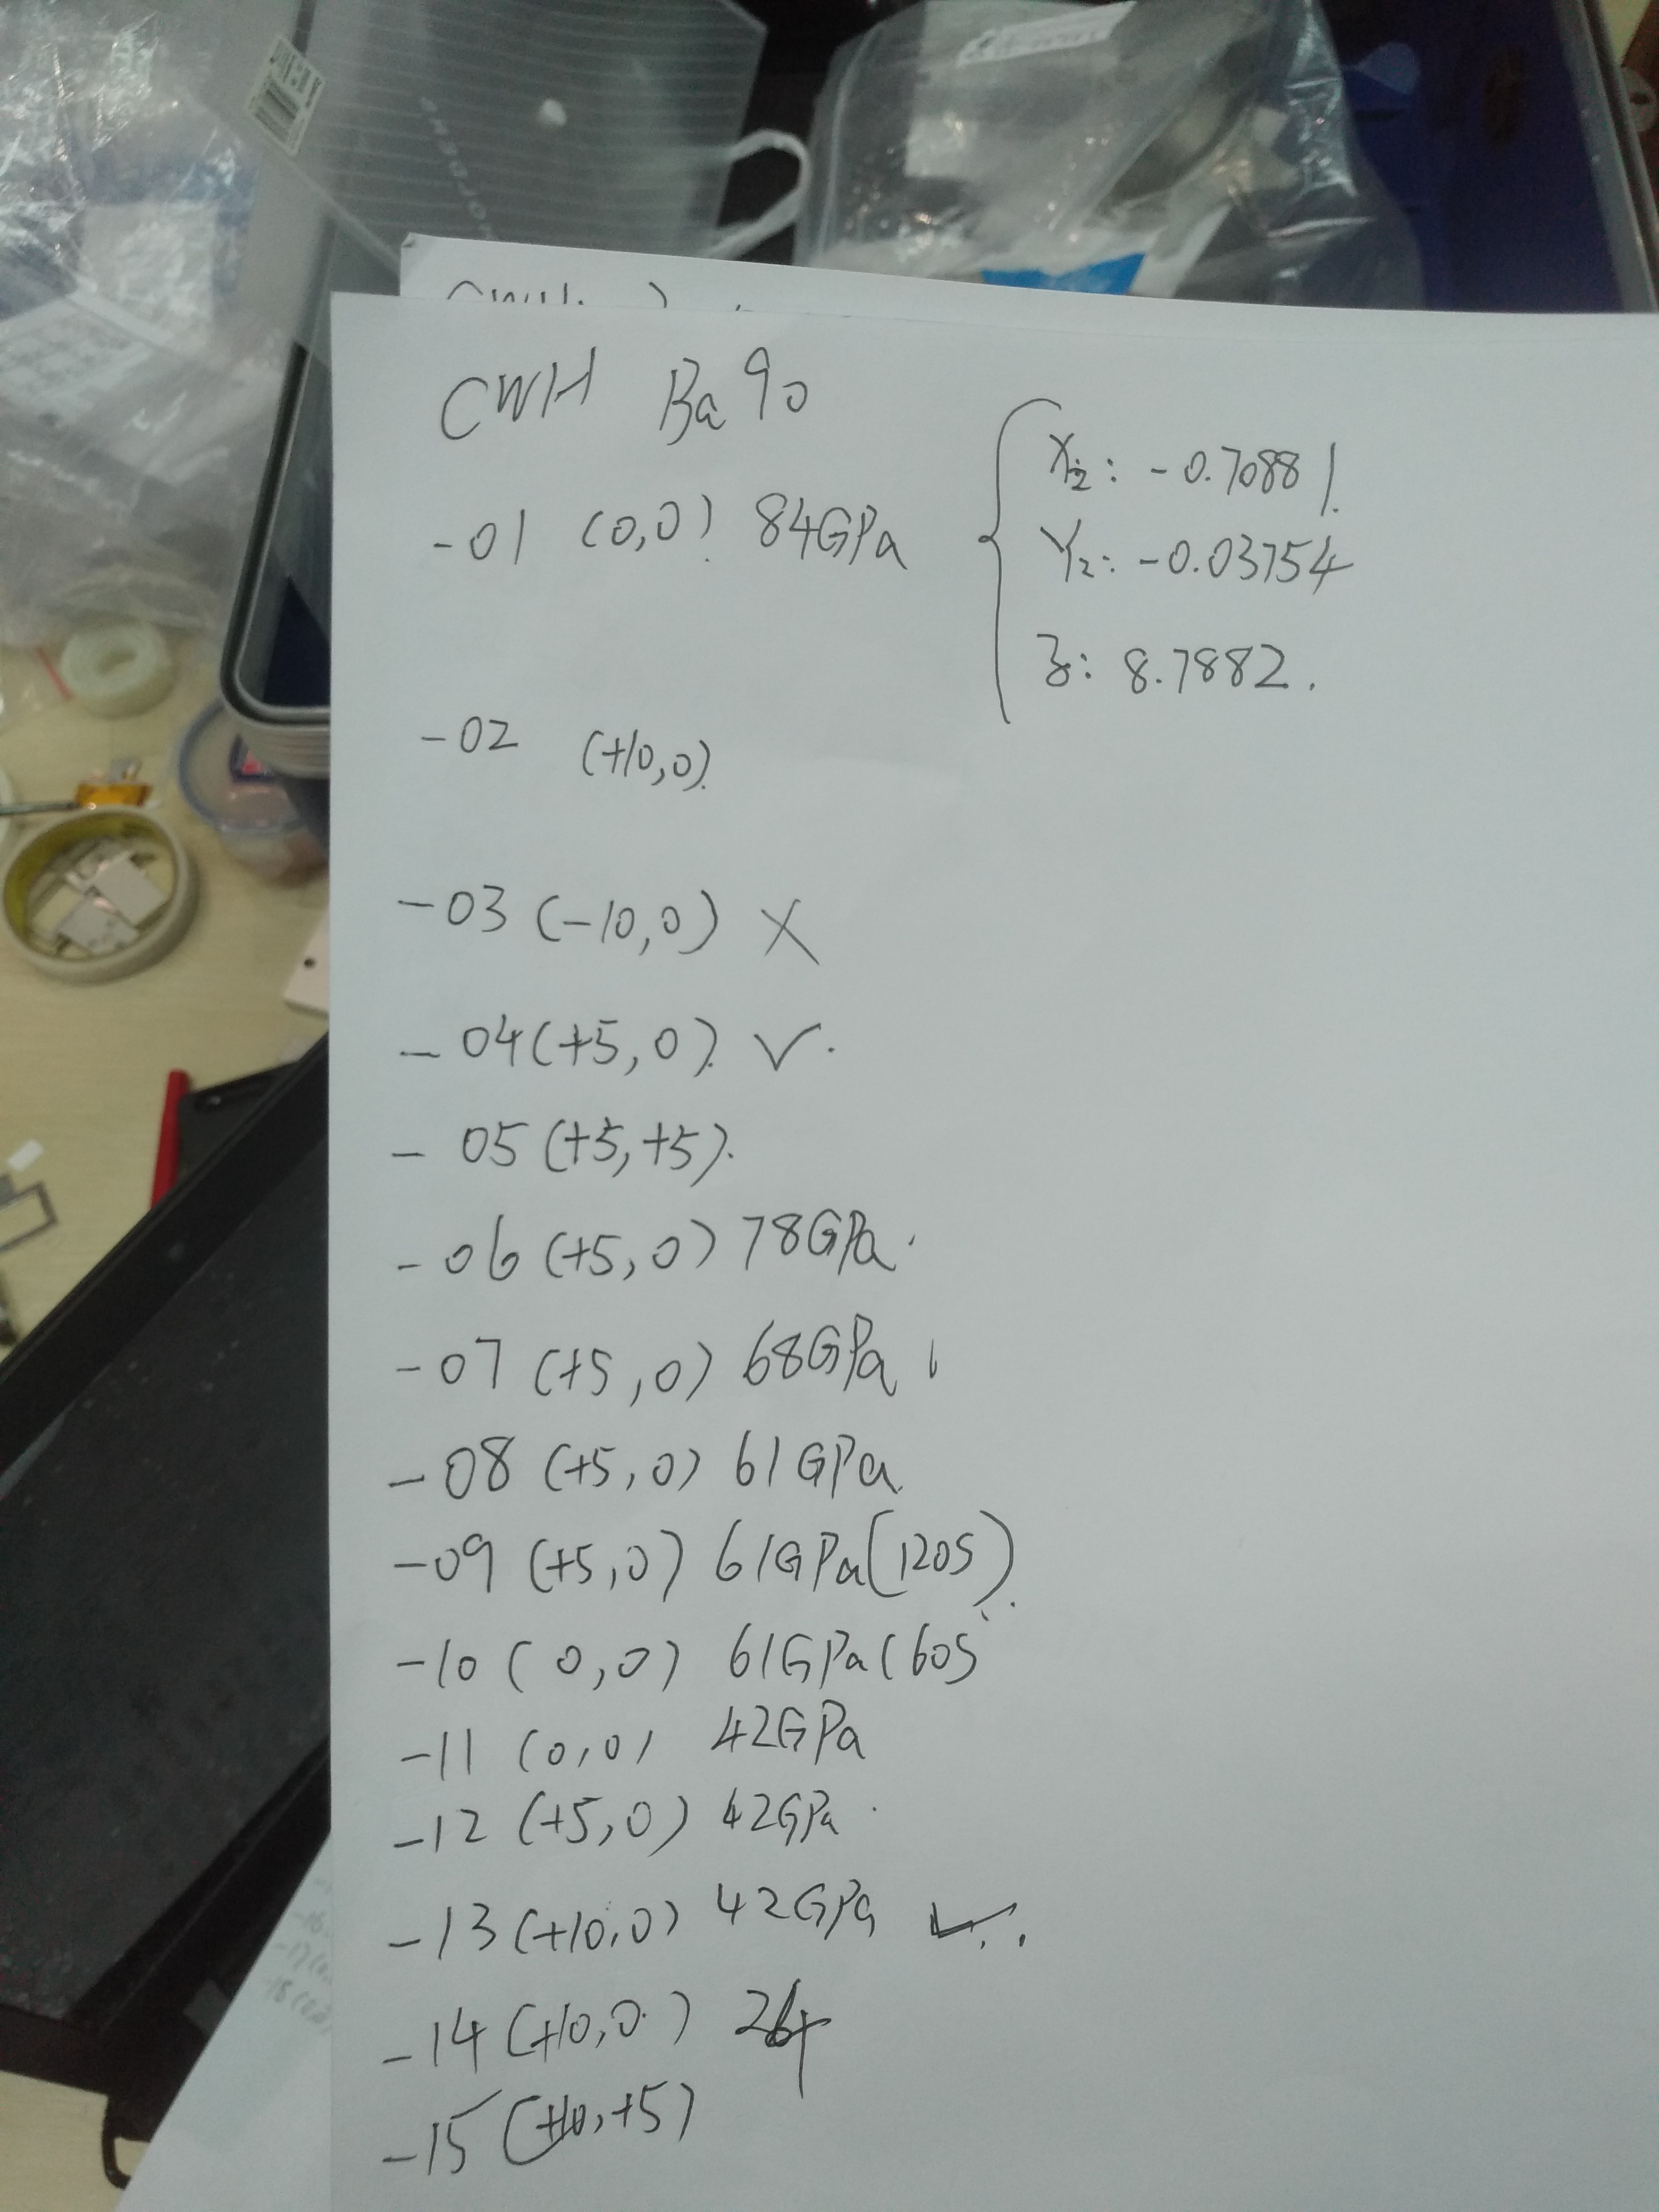 CWH Ba90
-01 (0,0) 84GPa
X2: -0.70881.
Y2: -0.03754
z: 8.7882.
-02 (+10,0).
-03 (-10,0) X
-04 (+5,0). ✓.
-05 (+5,+5).
-06 (+5,0) 78GPa.
-07 (+5,0) 68GPa
-08 (+5,0) 61GPa
-09 (+5,0) 61GPa(120s).
-10 (0,0) 61GPa(60s
-11 (0,0) 42GPa
-12 (+5,0) 42GPa.
-13 (+10,0) 42GPa ✓..
-14 (+10,0)
-15 (+10,+5)